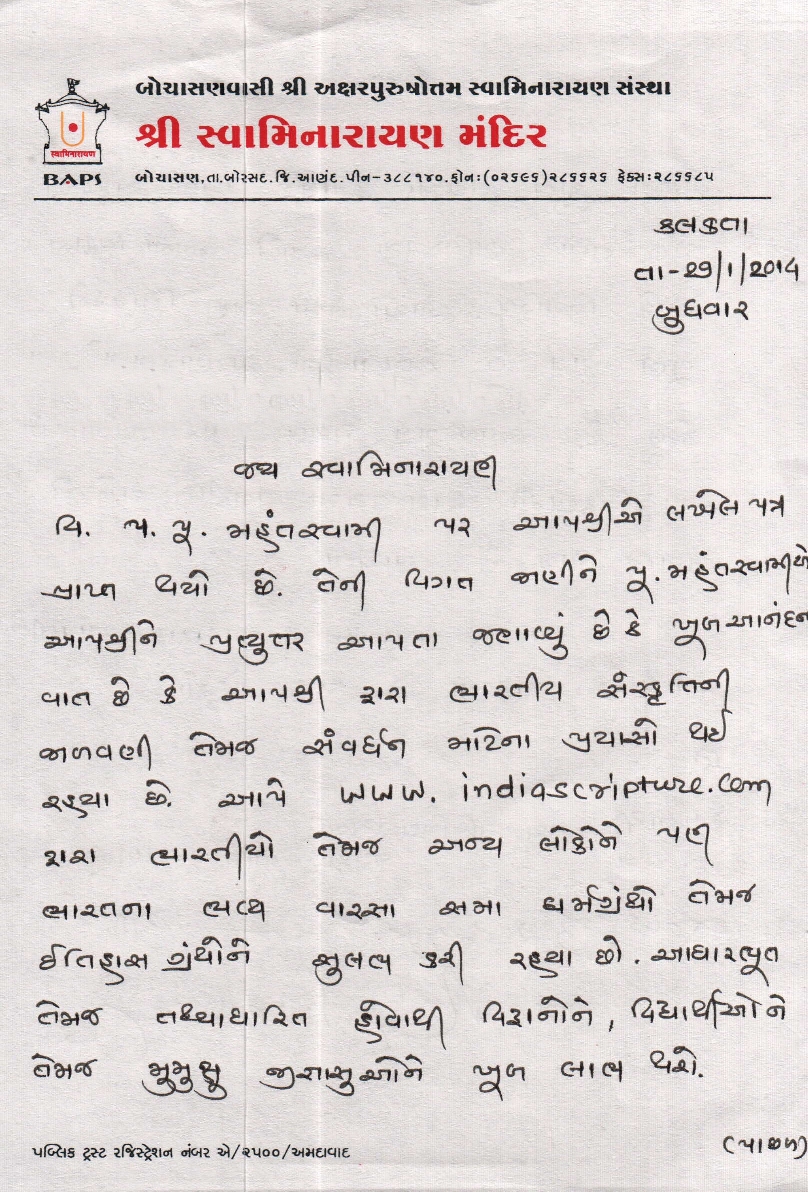 બોચાસણવાસી શ્રી અક્ષરપુરુષોત્તમ સ્વામિનારાયણ સંસ્થા
શ્રી સ્વામિનારાયણ મંદિર
સ્વામિનારાયણ
BAPS
બોચાસણ,તા.બોરસદ.જિ.આણંદ.પીન-૩૮૮૧૪૦.ફોન:(૦૨૬૯૬)૨૮૬૬૨૬ ફેક્સ:૨૮૬૬૮૫
કલકતા
તા-29/1/2014
બુધવાર
જય સ્વામિનારાયણ
વિ. પ. પૂ. મહંતસ્વામી પર આપશ્રીએ લખેલ પત્ર
પ્રાપ્ત થયો છે. તેની વિગત જાણીને પૂ. મહંતસ્વામીએ
આપશ્રીને પ્રત્યુત્તર આપતા જણાવ્યું છે કે ખૂબ આનંદની
વાત છે કે આપશ્રી દ્વારા ભારતીય સંસ્કૃતિની
જાળવણી તેમજ સંવર્ધન માટેના પ્રયાસો થઈ
રહ્યા છે. આપે WWW. indiascripture.com
દ્વારા ભારતીયો તેમજ અન્ય લોકોને પણ
ભારતના ભવ્ય વારસા સમા ધર્મગ્રંથો તેમજ
ઈતિહાસ ગ્રંથોને સુલભ કરી રહ્યા છો. આધારભૂત
તેમજ તથ્યાધારિત હોવાથી વિદ્વાનોને, વિદ્યાર્થીઓને
તેમજ મુમુક્ષુ જીજ્ઞાસુઓને ખૂબ લાભ થશે.
પબ્લિક ટ્રસ્ટ રજિસ્ટ્રેશન નંબર એ/૨૫૦૦/અમદાવાદ
(પાછળ)